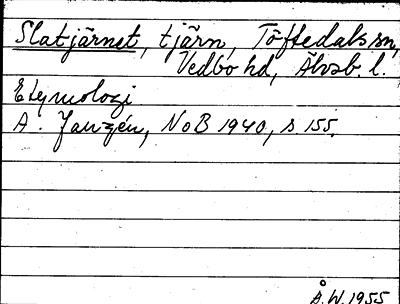 Slatjärnet, tjärn, Töftedals sn,
Vedbo hd, Älvsb. l.
Etymologi
A. Janzén, NoB 1940, s. 155.
Å.W. 1955